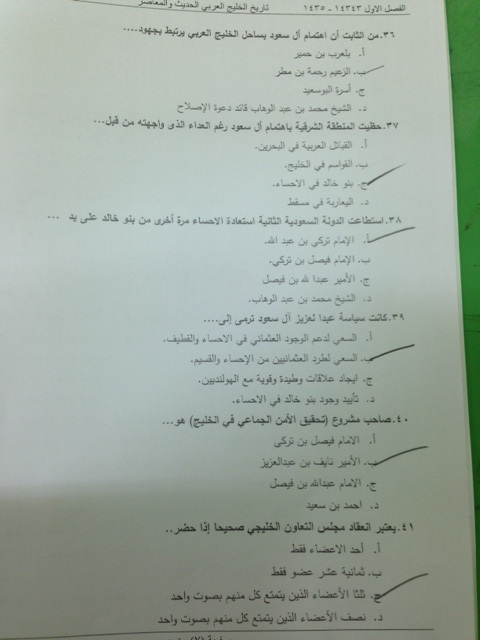 الفصل الاول ١٤٣٤٣ - ١٤٣٥ تاريخ الخليج العربي الحديث والمعاصر
٣٦. من الثابت أن اهتمام آل سعود بساحل الخليج العربي يرتبط بجهود....
أ. بلعرب بن حمير
ب. الزعيم رحمة بن مطر
ج. أسرة البوسعيد
د. الشيخ محمد بن عبد الوهاب قائد دعوة الإصلاح
٣٧. حظيت المنطقة الشرقية باهتمام آل سعود رغم العداء الذى واجهته من قبل...
أ. القبائل العربية في البحرين.
ب. القواسم في الخليج.
ج. بنو خالد في الاحساء.
د. اليعاربة في مسقط
٣٨. استطاعت الدولة السعودية الثانية استعادة الاحساء مرة أخرى من بنو خالد على يد ...
أ. الإمام تركي بن عبد الله.
ب. الإمام فيصل بن تركي.
ج. الأمير عبدا لله بن فيصل
د. الشيخ محمد بن عبد الوهاب.
٣٩. كانت سياسة عبدا لعزيز آل سعود ترمى إلى....
أ. السعي لدعم الوجود العثماني في الاحساء والقطيف.
ب. السعي لطرد العثمانيين من الإحساء والقسيم.
ج. ايجاد علاقات وطيدة وقوية مع الهولنديين.
د. تأييد وجود بنو خالد في الاحساء.
٤٠. صاحب مشروع (تحقيق الأمن الجماعي في الخليج) هو...
أ. الامام فيصل بن تركي
ب. الأمير نايف بن عبدالعزيز
ج. الامام عبدالله بن فيصل
د. احمد بن سعيد
٤١. يعتبر انعقاد مجلس التعاون الخليجي صحيحا إذا حضر..
أ. أحد الاعضاء فقط
ب. ثمانية عشر عضو فقط
ج. ثلثا الأعضاء الذين يتمتع كل منهم بصوت واحد
د. نصف الأعضاء الذين يتمتع كل منهم بصوت واحد